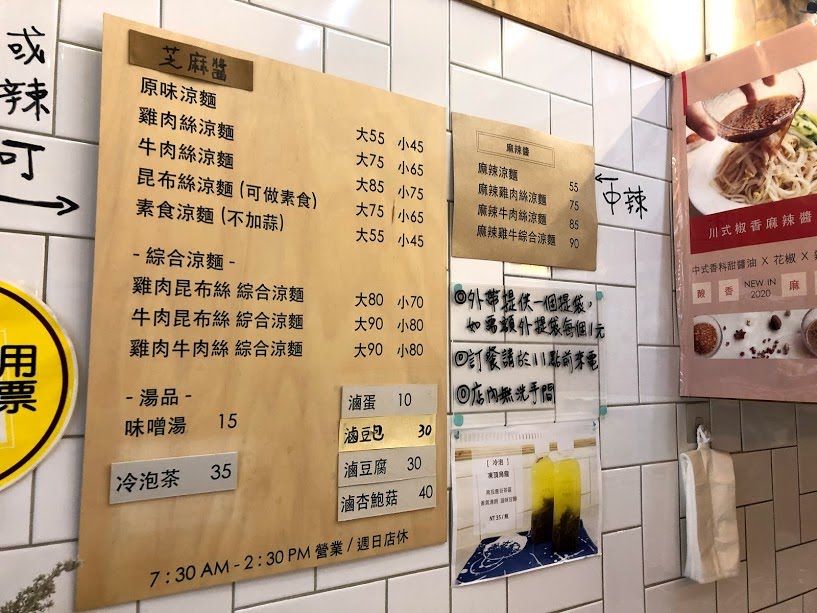 或
辣
可
用
票
芝麻醬
原味涼麵 大55 小45
雞肉絲涼麵 大75 小65
牛肉絲涼麵 大85 小75
昆布絲涼麵 (可做素食) 大75 小65
素食涼麵 (不加蒜) 大55 小45
- 綜合涼麵 -
雞肉昆布絲 綜合涼麵 大80 小70
牛肉昆布絲 綜合涼麵 大90 小80
雞肉牛肉絲 綜合涼麵 大90 小80
- 湯品 -
味噌湯 15
冷泡茶 35
滷蛋 10
滷豆包 30
滷豆腐 30
滷杏鮑菇 40
7:30 AM - 2:30 PM 營業 / 週日店休
麻辣醬
麻辣涼麵 55
麻辣雞肉絲涼麵 75
麻辣牛肉絲涼麵 85
麻辣雞牛綜合涼麵 90
中辣
◎外帶提供一個提袋,
如要額外提袋每個1元
◎訂餐請於11點前來電
◎店內無洗手間
[ 冷泡 ]
凍頂烏龍
NT 35 / 瓶
川式椒香麻辣醬
中式香料甜醬油 X 花椒 X
酸 香 NEW IN 2020 麻